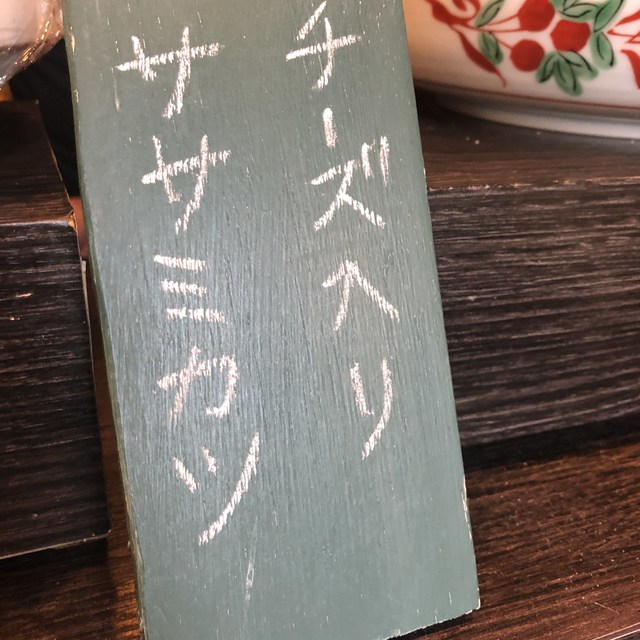 チーズ入り
ササミカツ